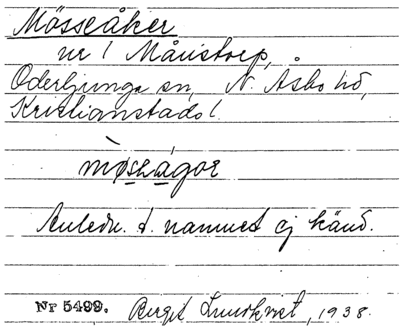 Mösseåker
nr 1 Månstorp,
Oderljunga sn, N. Åsbo hd,
Kristianstads l.
Anledn. t. namnet ej känd.
Nr 5499. Birgit Lundkvist, 1938.